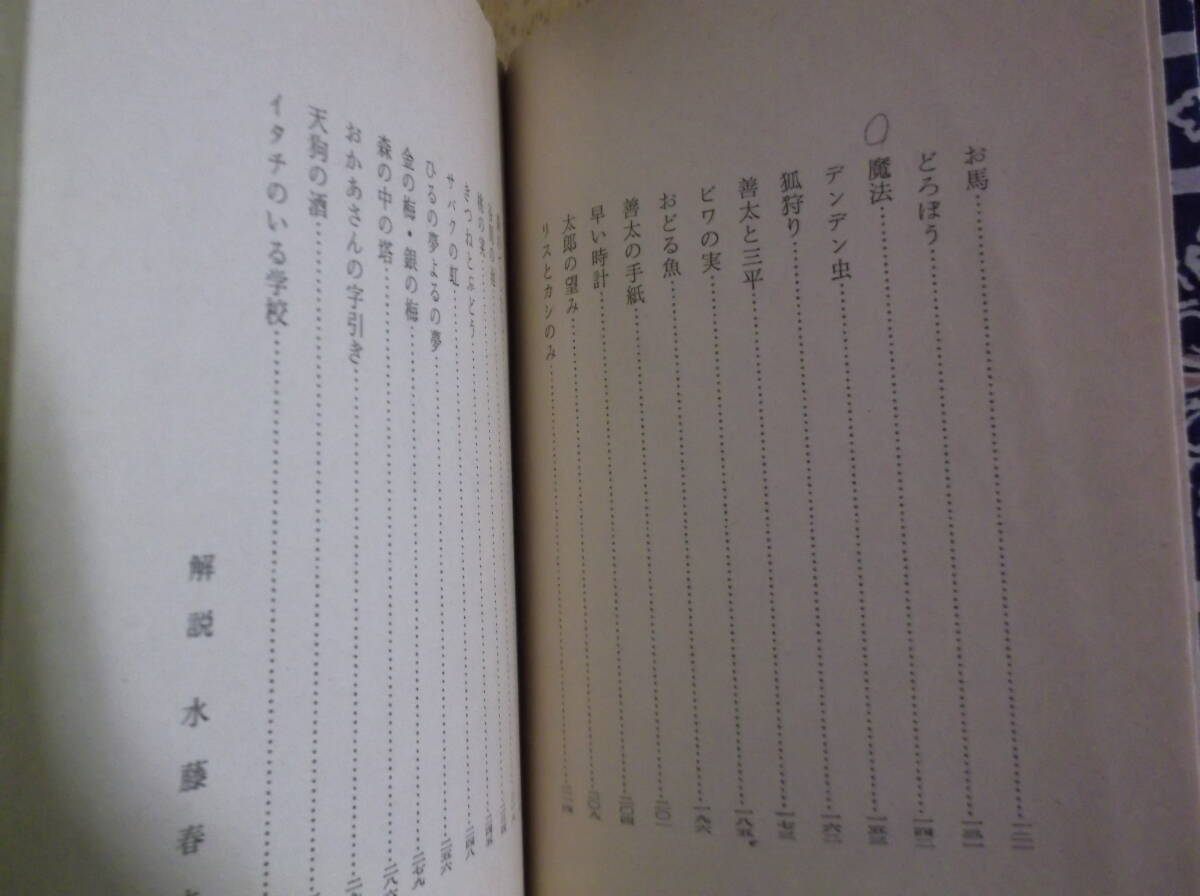 お馬……一二一
どろぼう……一三一
○魔法……一四二
デンデン虫……一五三
狐狩り……一六二
善太と三平……一七三
ビワの実……一八五
おどる魚……一九六
善太の手紙……二〇一
早い時計……二〇四
太郎の望み……二〇八
リスとカシのみ……二一四
桃の実……
きつねとぶどう……
サバクの虹……二四八
ひるの夢よるの夢……二五六
金の梅・銀の梅……二七九
森の中の塔……
おかあさんの字引き……
天狗の酒……
イタチのいる学校……
解説 水藤春